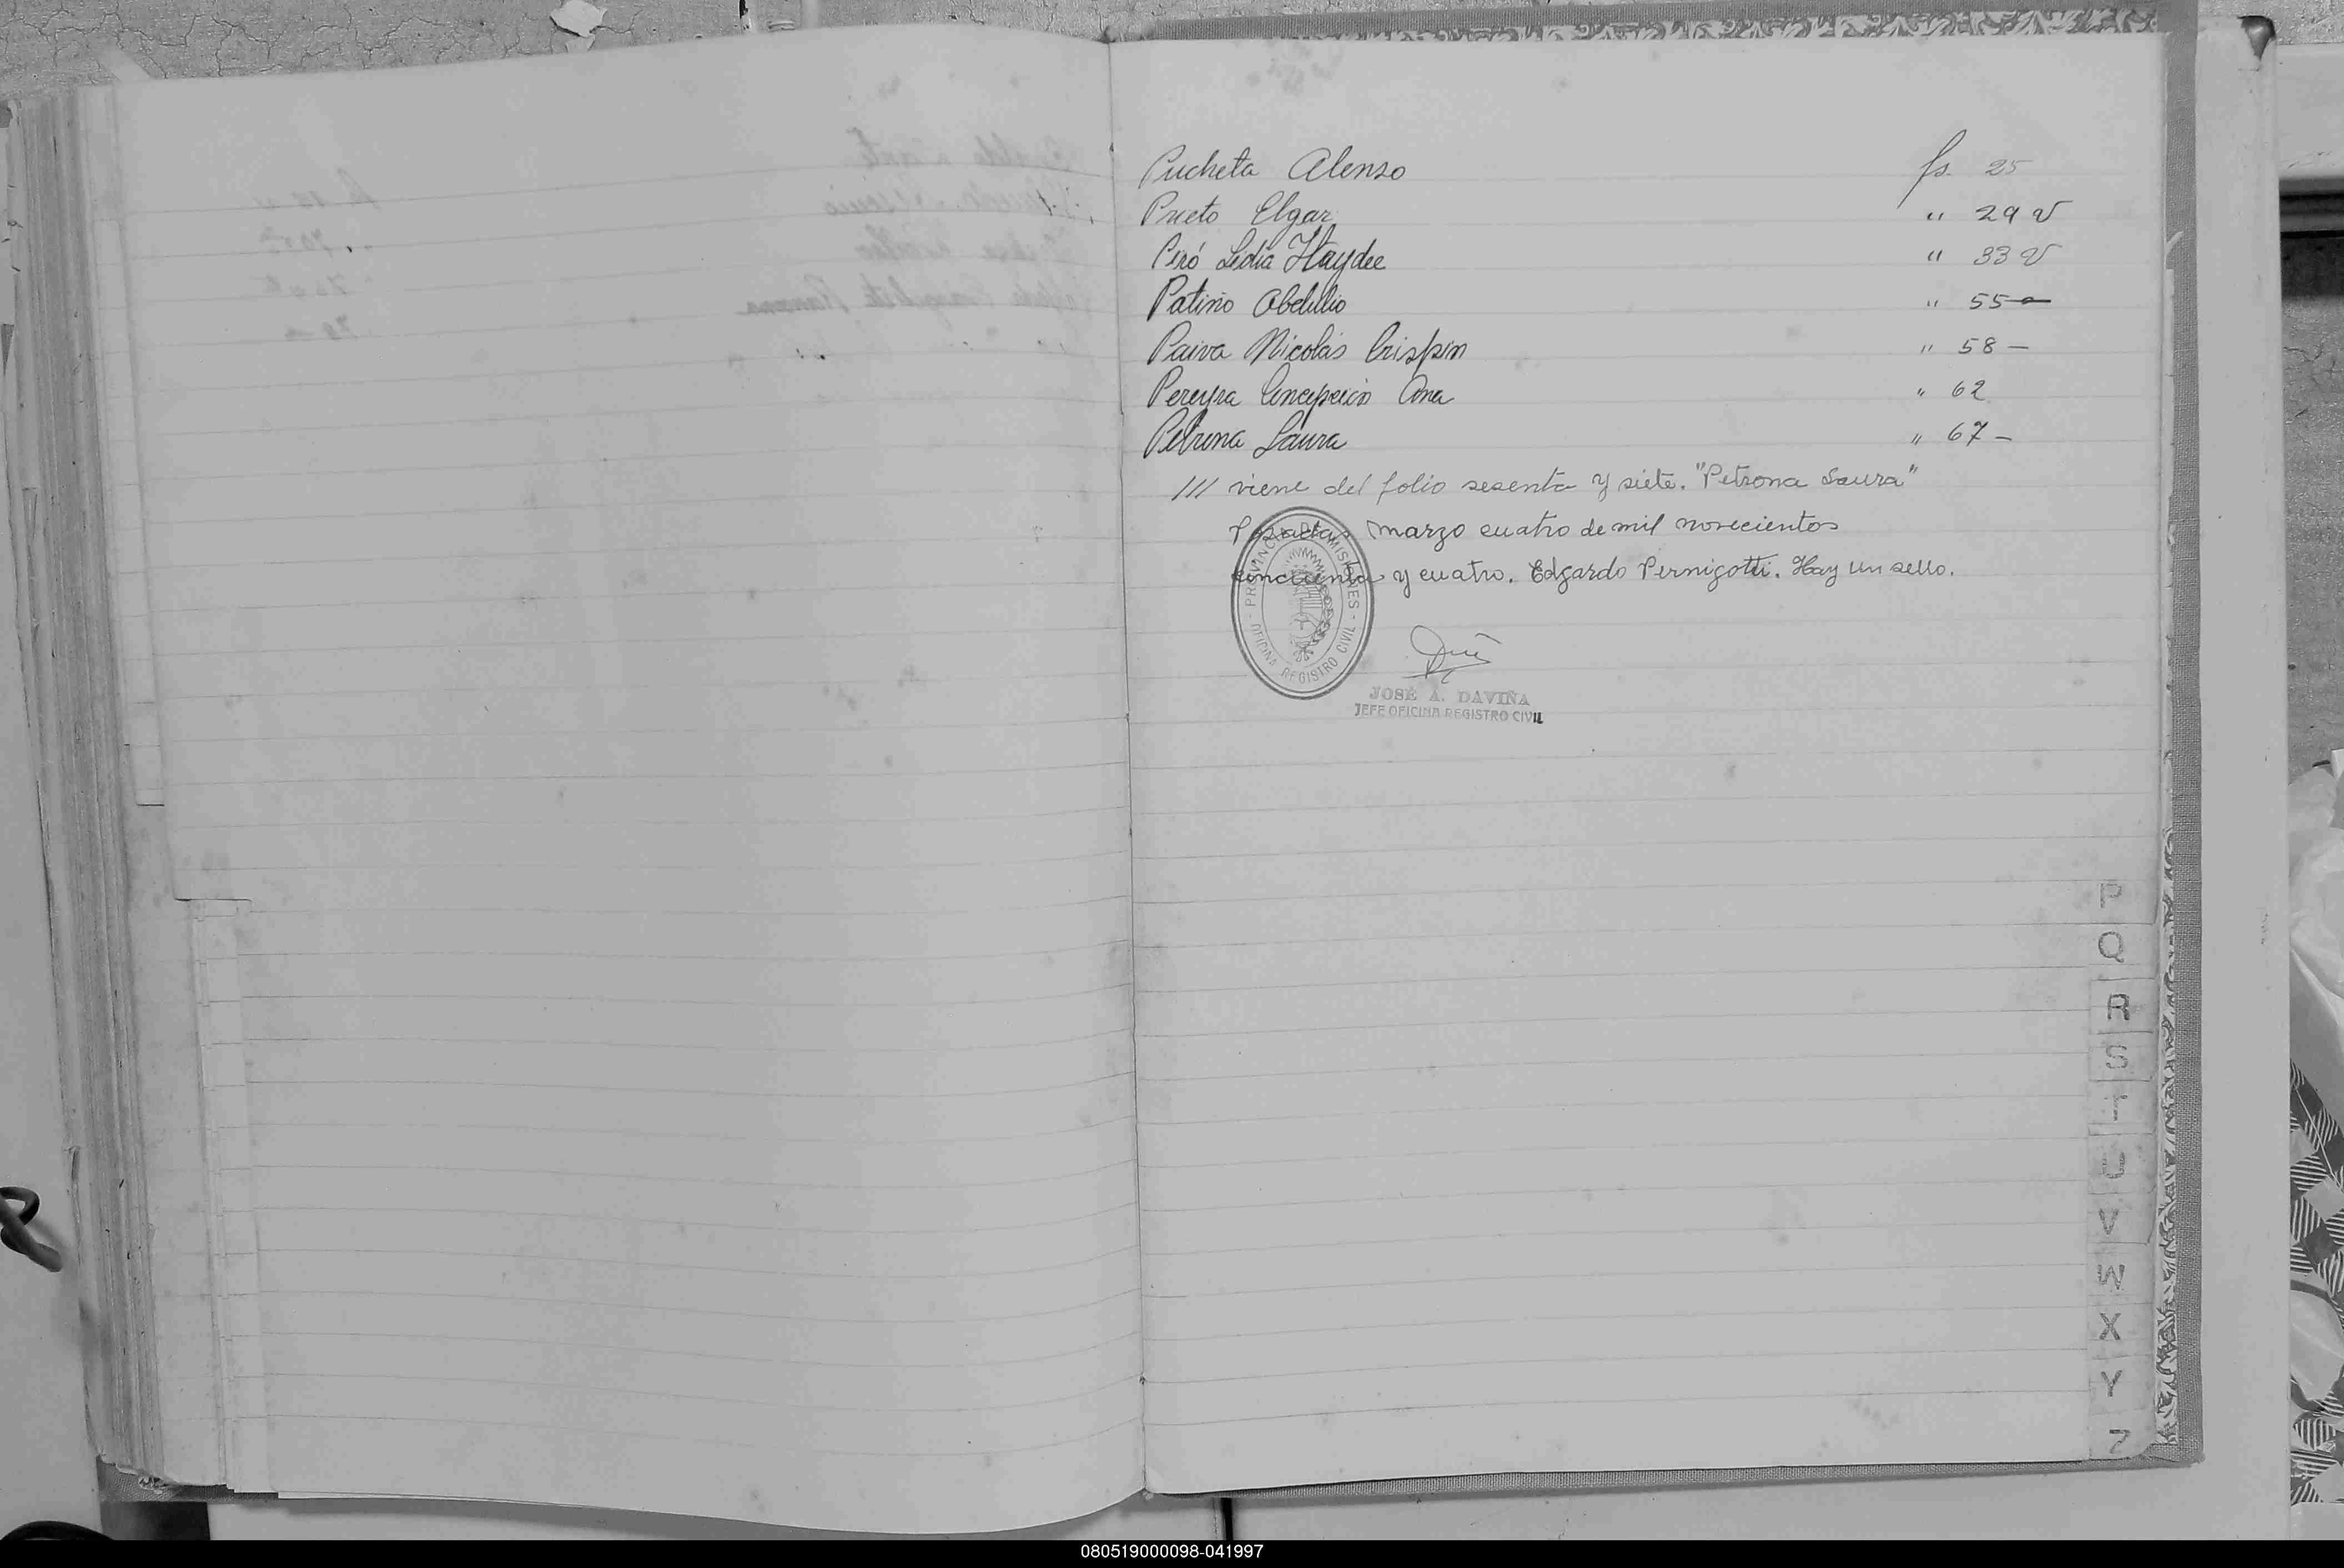 Pucheta Alonso fs. 25
Prieto Elgar " 29 v
Piró Lidia Haydee " 33 v
Patiño Obdulio " 55 —
Paiva Nicolás Crispin " 58 —
Pereyra Concepción Ana " 62
Petrona Laura " 67 —
/// viene del folio sesenta y siete. "Petrona Laura"
marzo cuatro de mil novecientos
cincuenta y cuatro. Edgardo Pernigotti. Hay un sello.
PROVINCIA DE MISIONES
OFICINA REGISTRO CIVIL
JOSÉ A. DAVIÑA
JEFE OFICINA REGISTRO CIVIL
P
Q
R
S
T
U
V
W
X
Y
Z
080519000098-041997